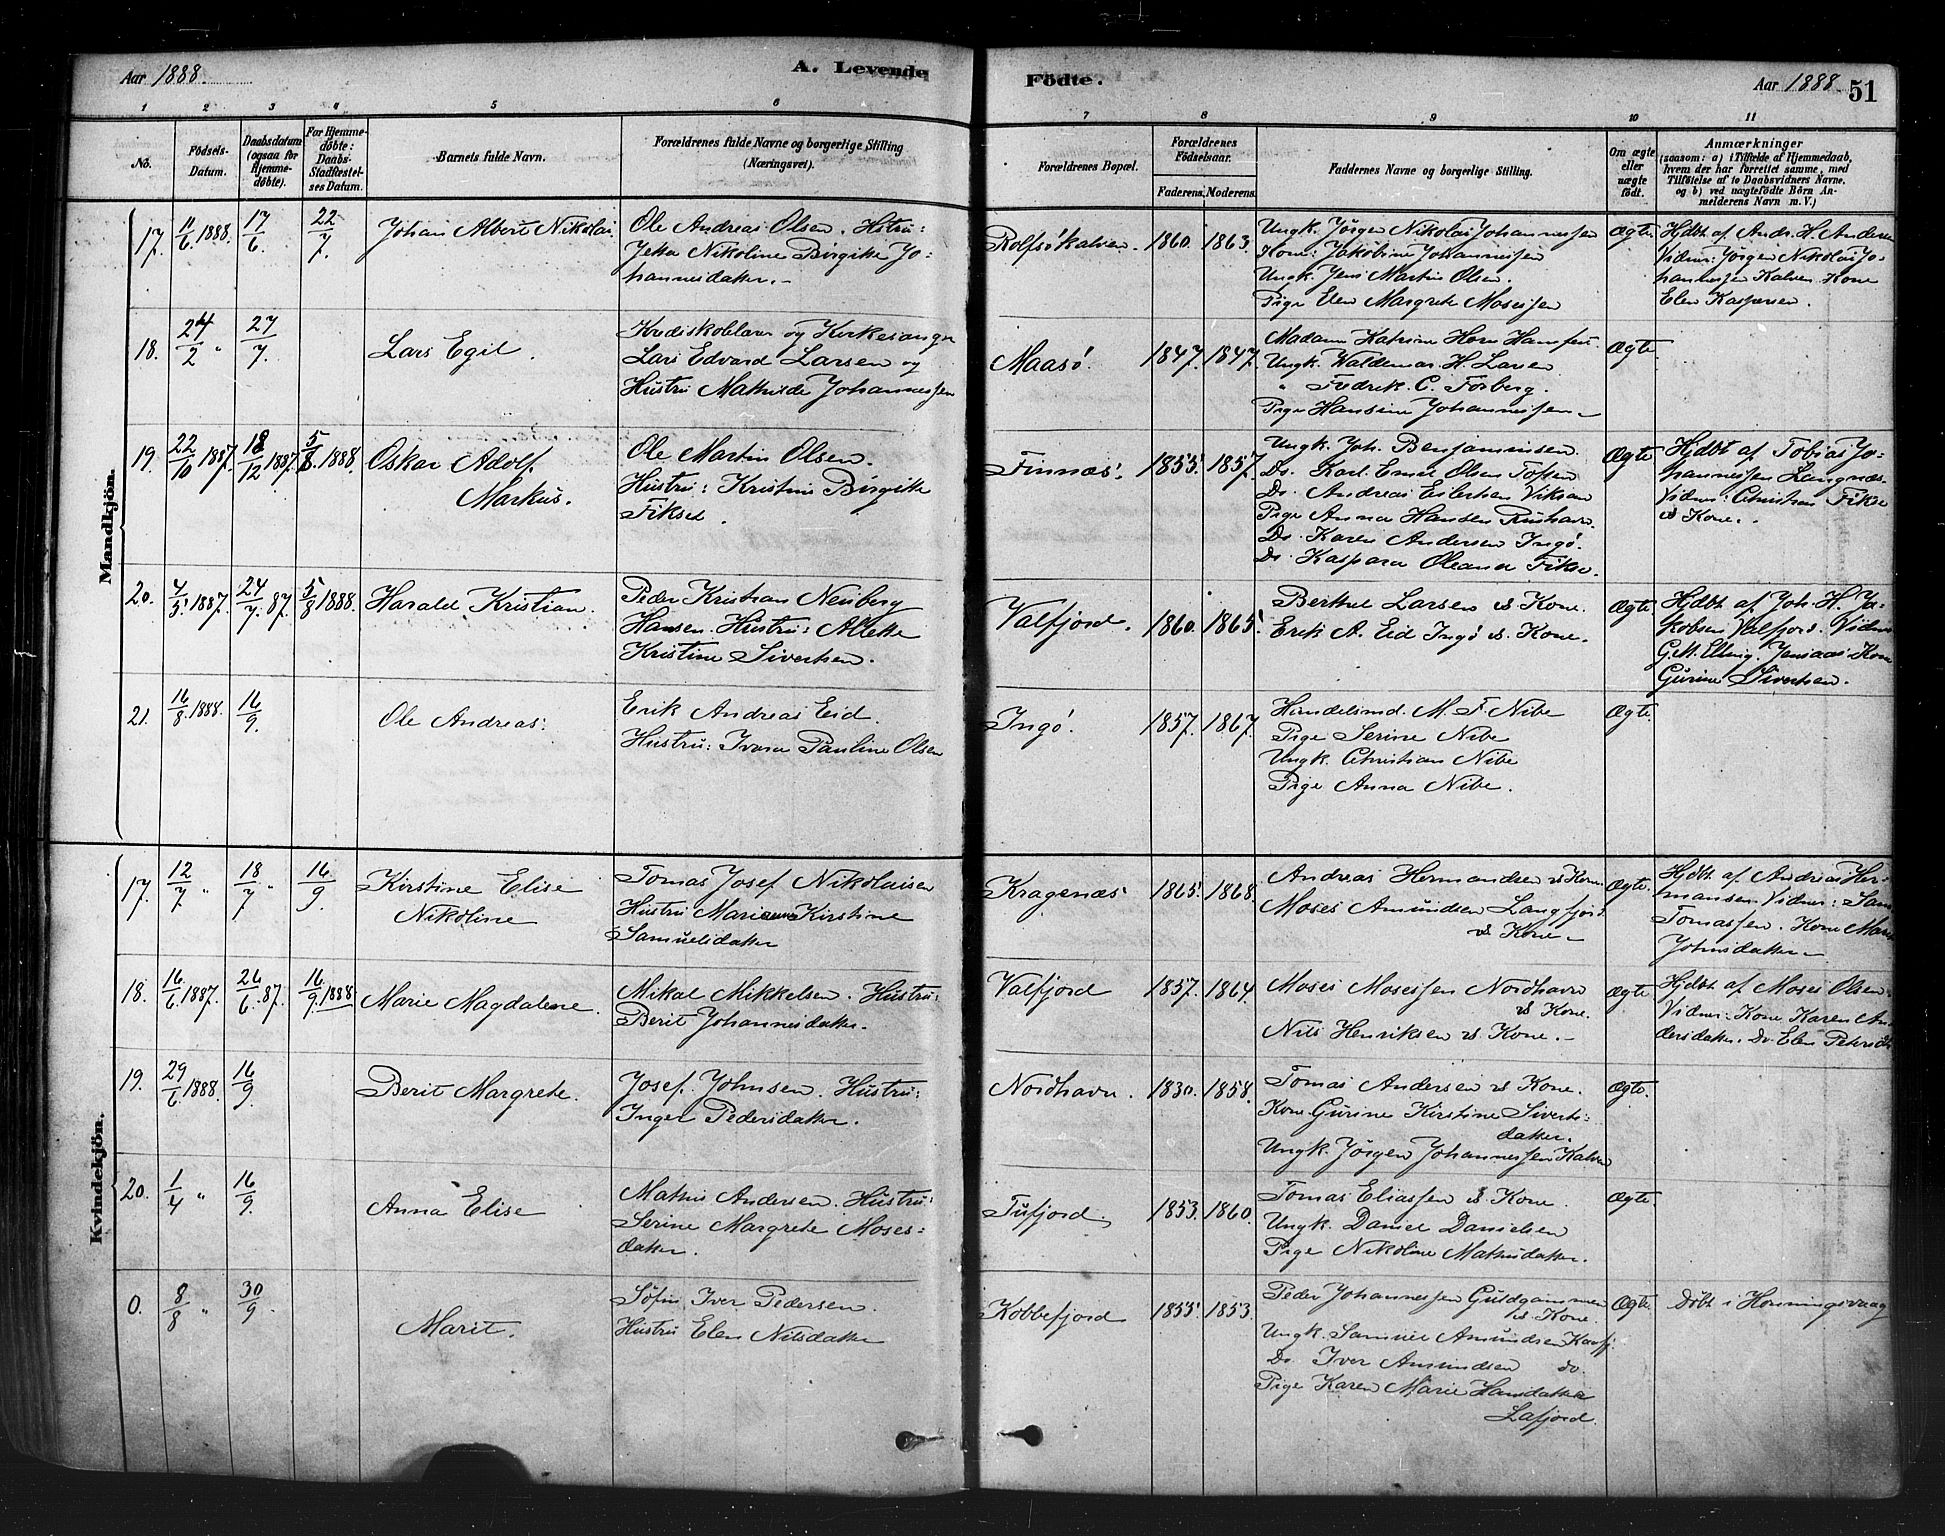 Aar 1888.
A. Levende
Födte.
Aar 1888.
51
1 2 3 4 5 6 7 8 9 10 11
No.
Födsels-Datum.
Daabsdatum (ogsaa for Hjemmedöbte).
For Hjemmedöbte: Daabs-Stadfæstelses Datum.
Barnets fulde Navn.
Forældrenes fulde Navne og borgerlige Stilling (Næringsvei).
Forældrenes Bopæl.
Forældrenes Födselsaar.
Faderens. Moderens.
Faddernes Navne og borgerlige Stilling.
Om ægte eller uægte födt.
Anmærkninger
(saasom: a) i Tilfælde af Hjemmedaab, hvem der har forrettet samme, med Tilföielse af to Daabsvidners Navne, og b) ved uægtefödte Börn Anmelderens Navn m. V.)
Mandkjön.
17. 11/6 1888. 17/6. 22/7.
Johan Albert Nikolai
Ole Andreas Olsen. Hstru:
Jetta Nikoline Birgitte Jo-
hannesdatter.
Rolfsökalven. 1860. 1863.
Ungk. Jörgen Nikolai Johannessen
Kone: Jakobine Johannessen
Ungk. Jens Martin Olsen.
Pige Elen Margrete Mosessen
Ægte.
Hjdbt af Andr. H. Andersen
Vidner: Jörgen Nikolai Jo-
hannessen Kalven. Kone
Elen Kaspersen.
18. 24/2 " 27/7.
Lars Egil.
Kredsskolelærer og Kirkesanger
Lars Edvard Larsen og
Hustru Mathilde Johannessen
Maasö. 1847. 1847.
Madam Katrine Horn Hansen
Ungk. Waldemar H. Larsen
" Fredrik C. Forberg.
Pige Hansine Johannessen
Ægte.
19. 22/10 1887. 18/12 1887. 5/8 1888.
Oskar Adolf
Markus.
Ole Martin Olsen.
Hustru: Kristine Birgitte
Fikse.
Finnæs. 1855. 1857.
Ungk. Joh. Benjaminsen
Do. Karl Emil Olsen Toften
Do. Andreas Eilertsen Viksan
Pige Anna Hansen
Do. Karen Andersen Ingö.
Do. Kaspara Oleana Fikse.
Ægte
Hjdbt af Tobias Jo-
hannessen Langnæs.
Vidner: Christian Fikse
& Kone.
20. 4/5 1887. 24/7 87. 5/8 1888.
Harald Kristian.
Peder Kristian Neuberg
Hansen. Hustru: Allette
Kristine Sivertsen.
Valfjord. 1860. 1865.
Berthel Larsen & Kone.
Erik A. Eid Ingö & Kone.
Ægte
Hjdbt af Joh. H. Ja-
kobsen Valfjord. Vidner
G. M. Kone
Gurine Sivertsen.
21. 16/8 1888. 16/9.
Ole Andreas.
Erik Andreas Eid.
Hustru: Ivara Pauline Olsen
Ingö. 1857. 1867.
Handelsmd. M. F. Nibe
Pige Serine Nibe
Ungk. Christian Nibe
Pige Anna Nibe.
Ægte.
Kvindekjön.
17. 12/7 " 18/7 " 16/9.
Kirstine Elise
Nikoline
Tomas Josef Nikolaisen
Hustru Marianna Kirstine
Samuelsdatter
Kragenæs 1865. 1868.
Andreas Hermandsen & Kone.
Moses Amundsen Langfjord
& Kone
Ægte.
Hjdbt af Andreas Her-
mansen. Vidner: Sam.
Tomassen. Kone Marit
Johnsdatter
18. 16/6 1887. 26/6 87. 16/9 1888.
Marie Magdalene.
Mikal Mikkelsen. Hustru:
Berit Johannesdatter.
Valfjord 1857. 1864.
Moses Mosessen Nordhavn
& Kone.
Nils Henriksen & Kone.
Ægte.
Hjdbt af Moses Olsen
Vidner: Kone Karen An-
dersdatter. Do. Elen Petersdtr
19. 29/6 1888. 16/9.
Berit Margrete.
Josef Johnsen. Hustru:
Inger Pedersdatter.
Nordhavn. 1830. 1858.
Tomas Andersen & Kone.
Kone Gurine Kirstine Siverts-
datter.
Ungk. Jörgen Johannessen Kalven
Ægte.
20. 1/4 " 16/9.
Anna Elise
Mathis Andersen. Hustru:
Serine Margrete Moses-
datter.
Tufjord 1853. 1860.
Tomas Eliassen & Kone.
Ungk. Daniel Danielsen
Pige Nikoline Mathisdatter.
Ægte.
0. 8/8 " 30/9.
Marit.
Söfin Iver Pedersen.
Hustru Elen Nilsdatter
Kobbefjord 1855. 1853.
Peder Johannessen Guldgammen
& Kone.
Ungk. Samuel Amundsen Kaafj.
Do. Iver Amundsen do
Pige Karen Marie Hansdatter
Lafjord.
Ægte.
Döbt i Honningsvaag